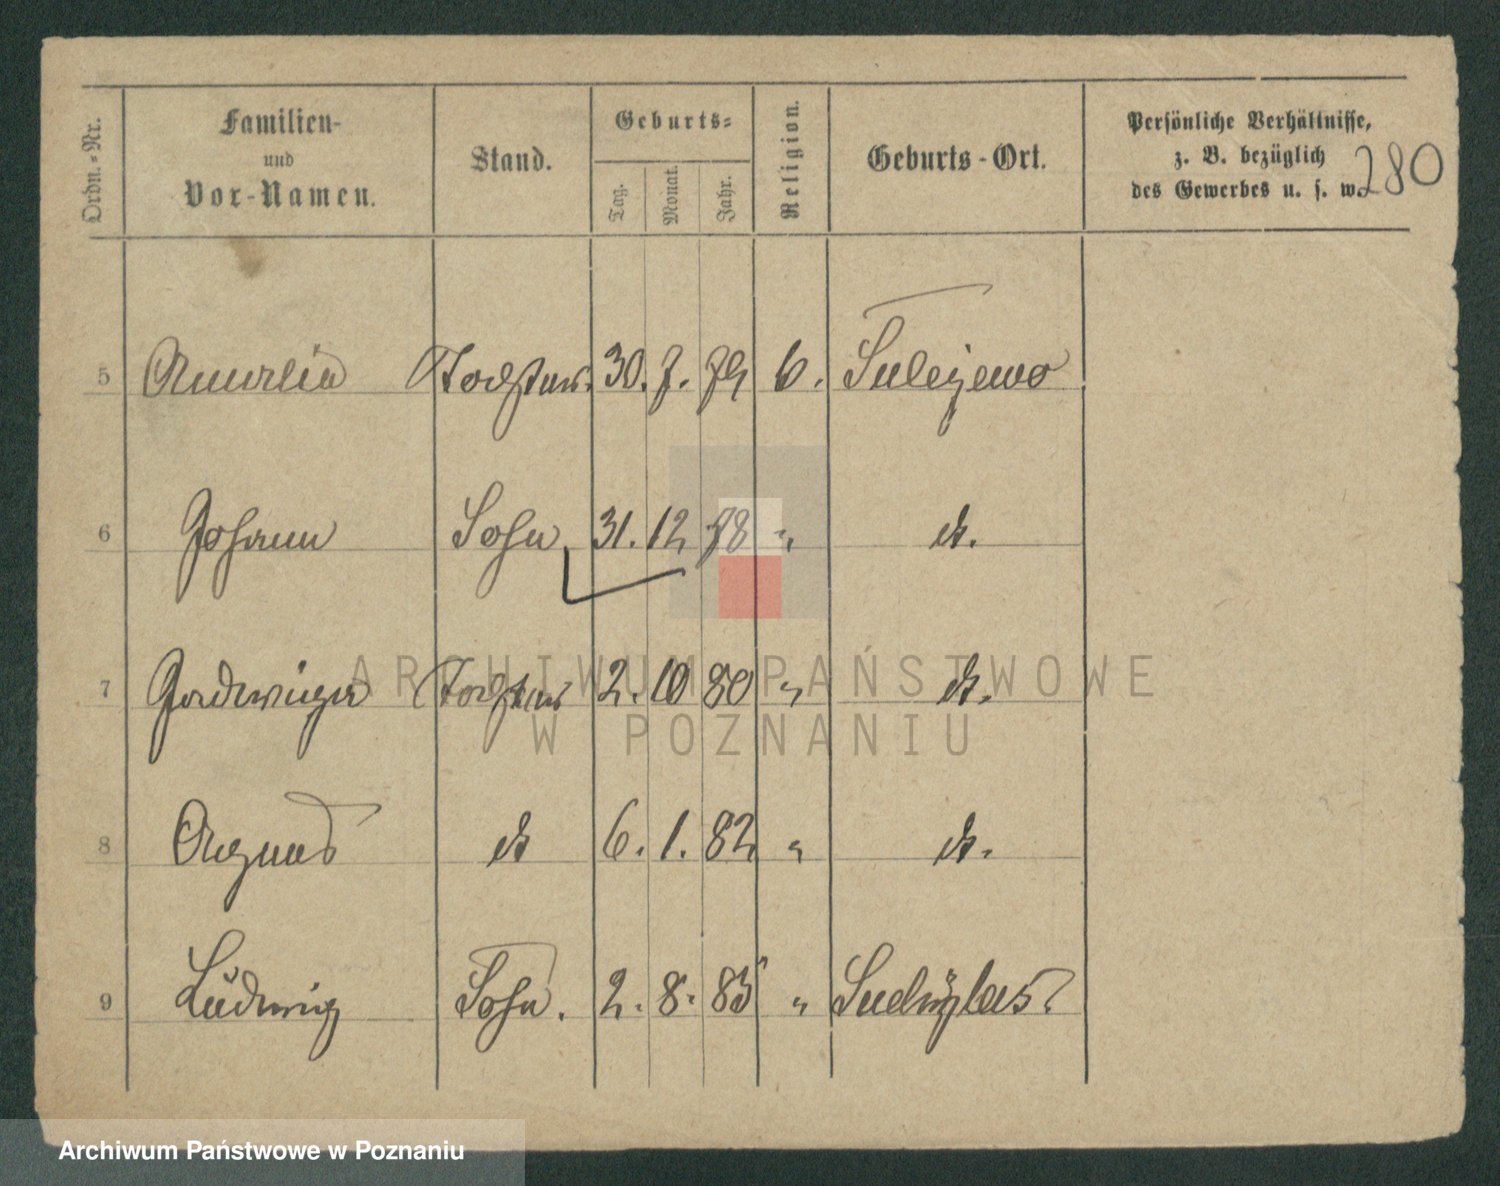 Ordn.-Nr. Familien- und Vor-Namen. Stand. Geburts- Tag. Monat. Jahr. Religion. Geburts-Ort. Persönliche Verhältnisse, z. B. bezüglich des Gewerbes u. s. w.
280
5 Amalia Tochter. 30. 7. 74 k. Sulejewo
6 Johann Sohn 31. 12 78 " dt.
7 Jadwiga Tochter 2. 10 80 " dt.
8 Agnes dt 6. 1. 82 " dt.
9 Ludwig Sohn. 2. 8. 85 "
ARCHIWUM PAŃSTWOWE
W POZNANIU
Archiwum Państwowe w Poznaniu